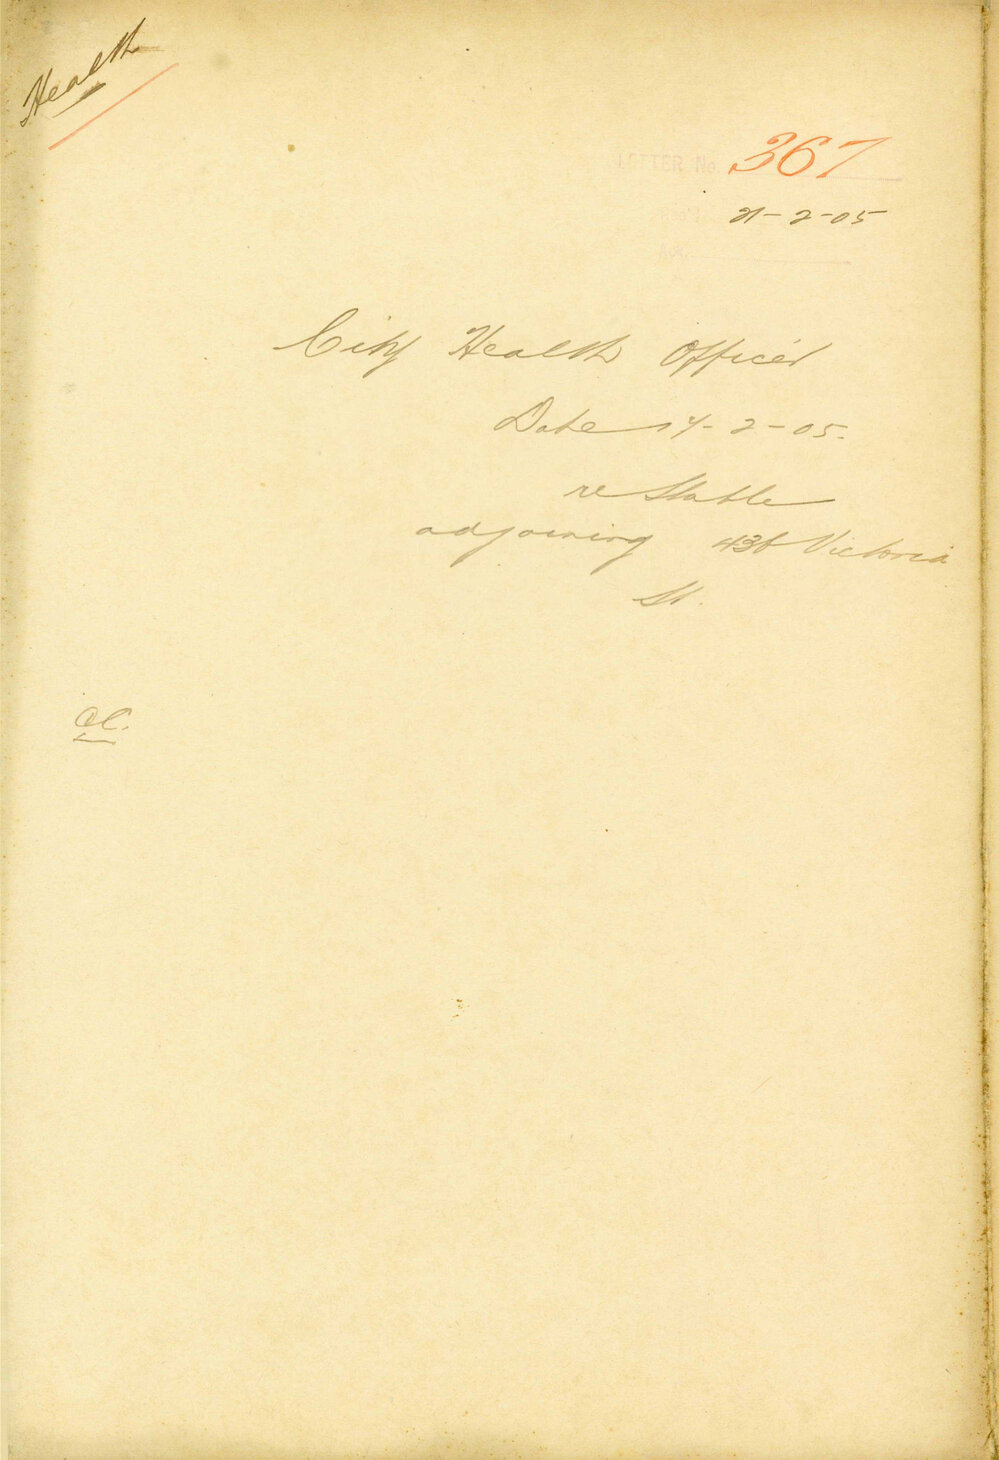 Health
LETTER No. 367
21-2-05
City Health Officer
Date 17-2-05.
re Stable
adjoining 436 Victoria
St.